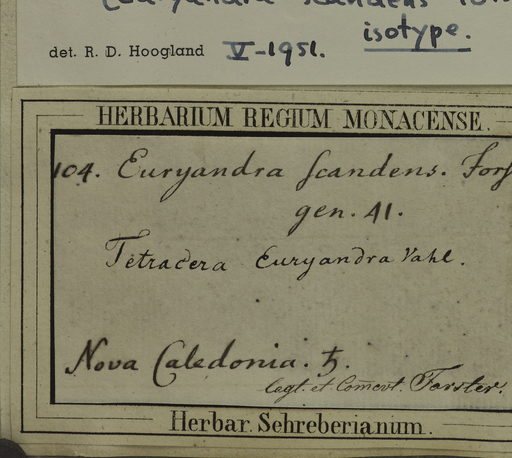 (Euryandra scandens
isotype.
det. R. D. Hoogland V-1951.
HERBARIUM REGIUM MONACENSE.
104. Euryandra scandens. Forst
gen. 41.
Tetracera Euryandra Vahl.
Nova Caledonia. ♄.
legt. et Comevt. Forster.
Herbar. Schreberianum.